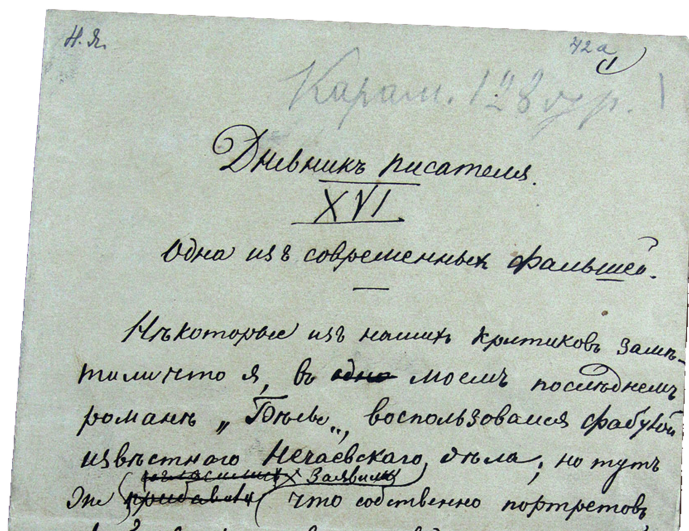 Н. Я. 72а
1
Карам. 128
Дневникъ писателя.
XVI
Одна изъ современныхъ фальшей.
Нѣкоторые изъ нашихъ критиковъ замѣ-
тили что я, въ одно моемъ послѣднемъ
романѣ „Бѣсы„, воспользовался фабулой
извѣстнаго Нечаевскаго дѣла; но тутъ
заявили
же (прибавили что собственно портретовъ